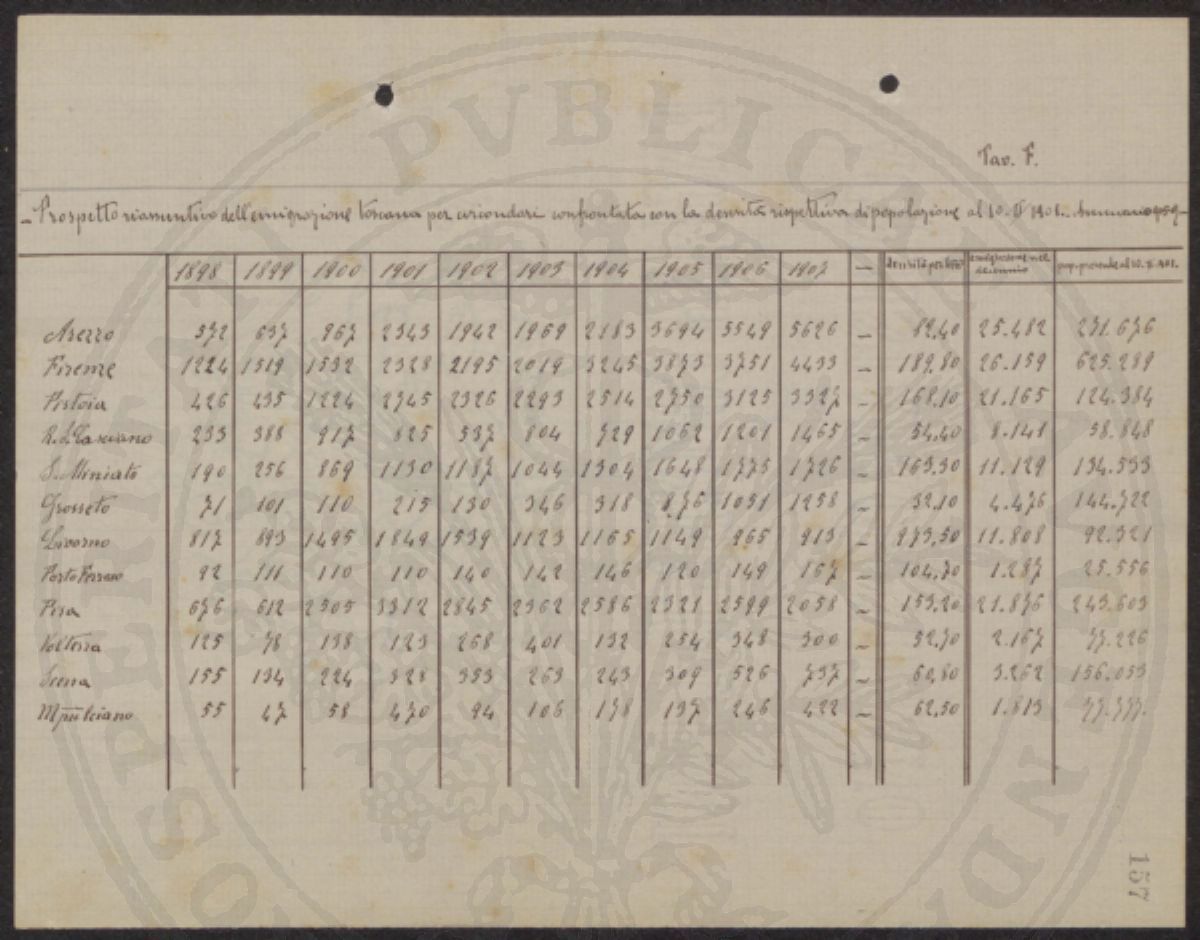 PVBLICAE
Tav. F.
Prospetto riassuntivo dell'emigrazione toscana per circondari confrontata con la densità rispettiva di popolazione al 10. II 1901.
1898 1899 1900 1901 1902 1903 1904 1905 1906 1907 — densità per emigrazione nel decennio pop. presente al 10. II. 901.
Arezzo 572 637 967 2343 1942 1969 2183 3694 5549 5626 — 82,40 25.482 271.676
Firenze 1224 1519 1532 2328 2195 2019 3245 3873 3751 4433 — 189,80 26.159 625.289
Pistoia 426 435 1224 2745 2326 2293 2514 2750 3125 3327 — 168,10 21.165 124.384
R. S. Casciano 233 388 917 825 537 804 729 1062 1201 1465 — 54,40 8.141 58.848
S. Miniato 190 256 869 1130 1187 1044 1304 1648 1775 1726 — 163,30 11.129 134.533
Grosseto 71 101 110 215 130 346 318 876 1051 1258 — 32,10 4.476 144.722
Livorno 817 893 1495 1849 1539 1123 1165 1149 965 913 — 973,50 11.808 92.321
Porto Ferraio 92 111 110 110 140 142 146 120 149 167 — 104,70 1.287 25.556
Pisa 676 612 2305 3312 2845 2362 2586 2321 2599 2058 — 153,20 21.876 243.603
Volterra 125 78 138 123 268 401 132 254 348 300 — 52,70 2.167 77.226
Siena 155 134 224 328 353 263 243 309 526 737 — 60,80 3.262 156.053
Mpulciano 55 47 58 470 94 106 178 137 246 422 — 62,50 1.813 77.777.
157